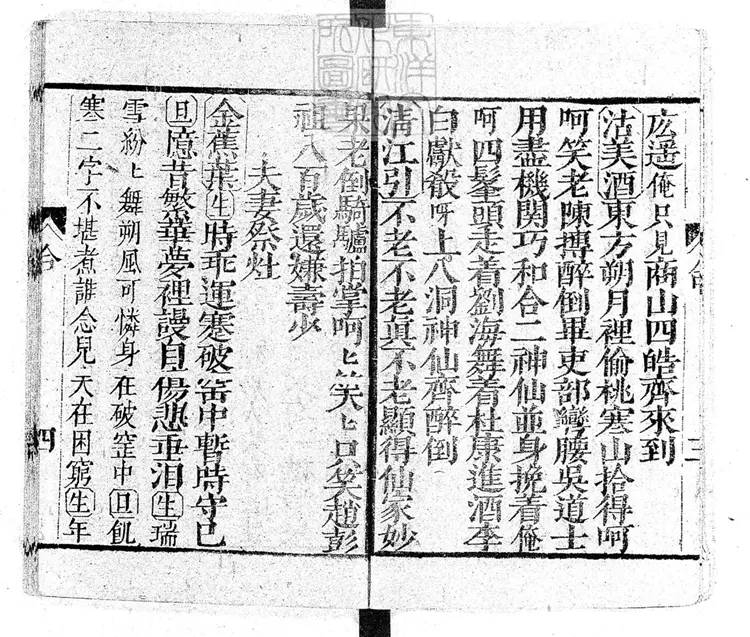 広遥俺只見商山四皓齊來到
沽美酒東方朔月裡偷桃寒山拾得呵
呵笑老陳摶醉倒畢吏部彎腰吳道士
用盡機関巧和合二神仙並身挽着俺
呵四鬔頭走着劉海舞着杜康進酒李
白獻殽呀上八洞神仙齊醉倒
清江引不老不老眞不老顯得仙家妙
果老倒騎驢拍掌呵上笑上只笑趙彭
祖八百歲還嫌壽少
夫妻祭灶
金蕉葉生時乖運蹇破窑中暫時守己
旦憶昔繁華夢裡謾自傷悲垂泪生瑞
雪紛上舞朔風可憐身在破窑中旦飢
寒二字不堪煮誰念兒天在困窮生年
三
四